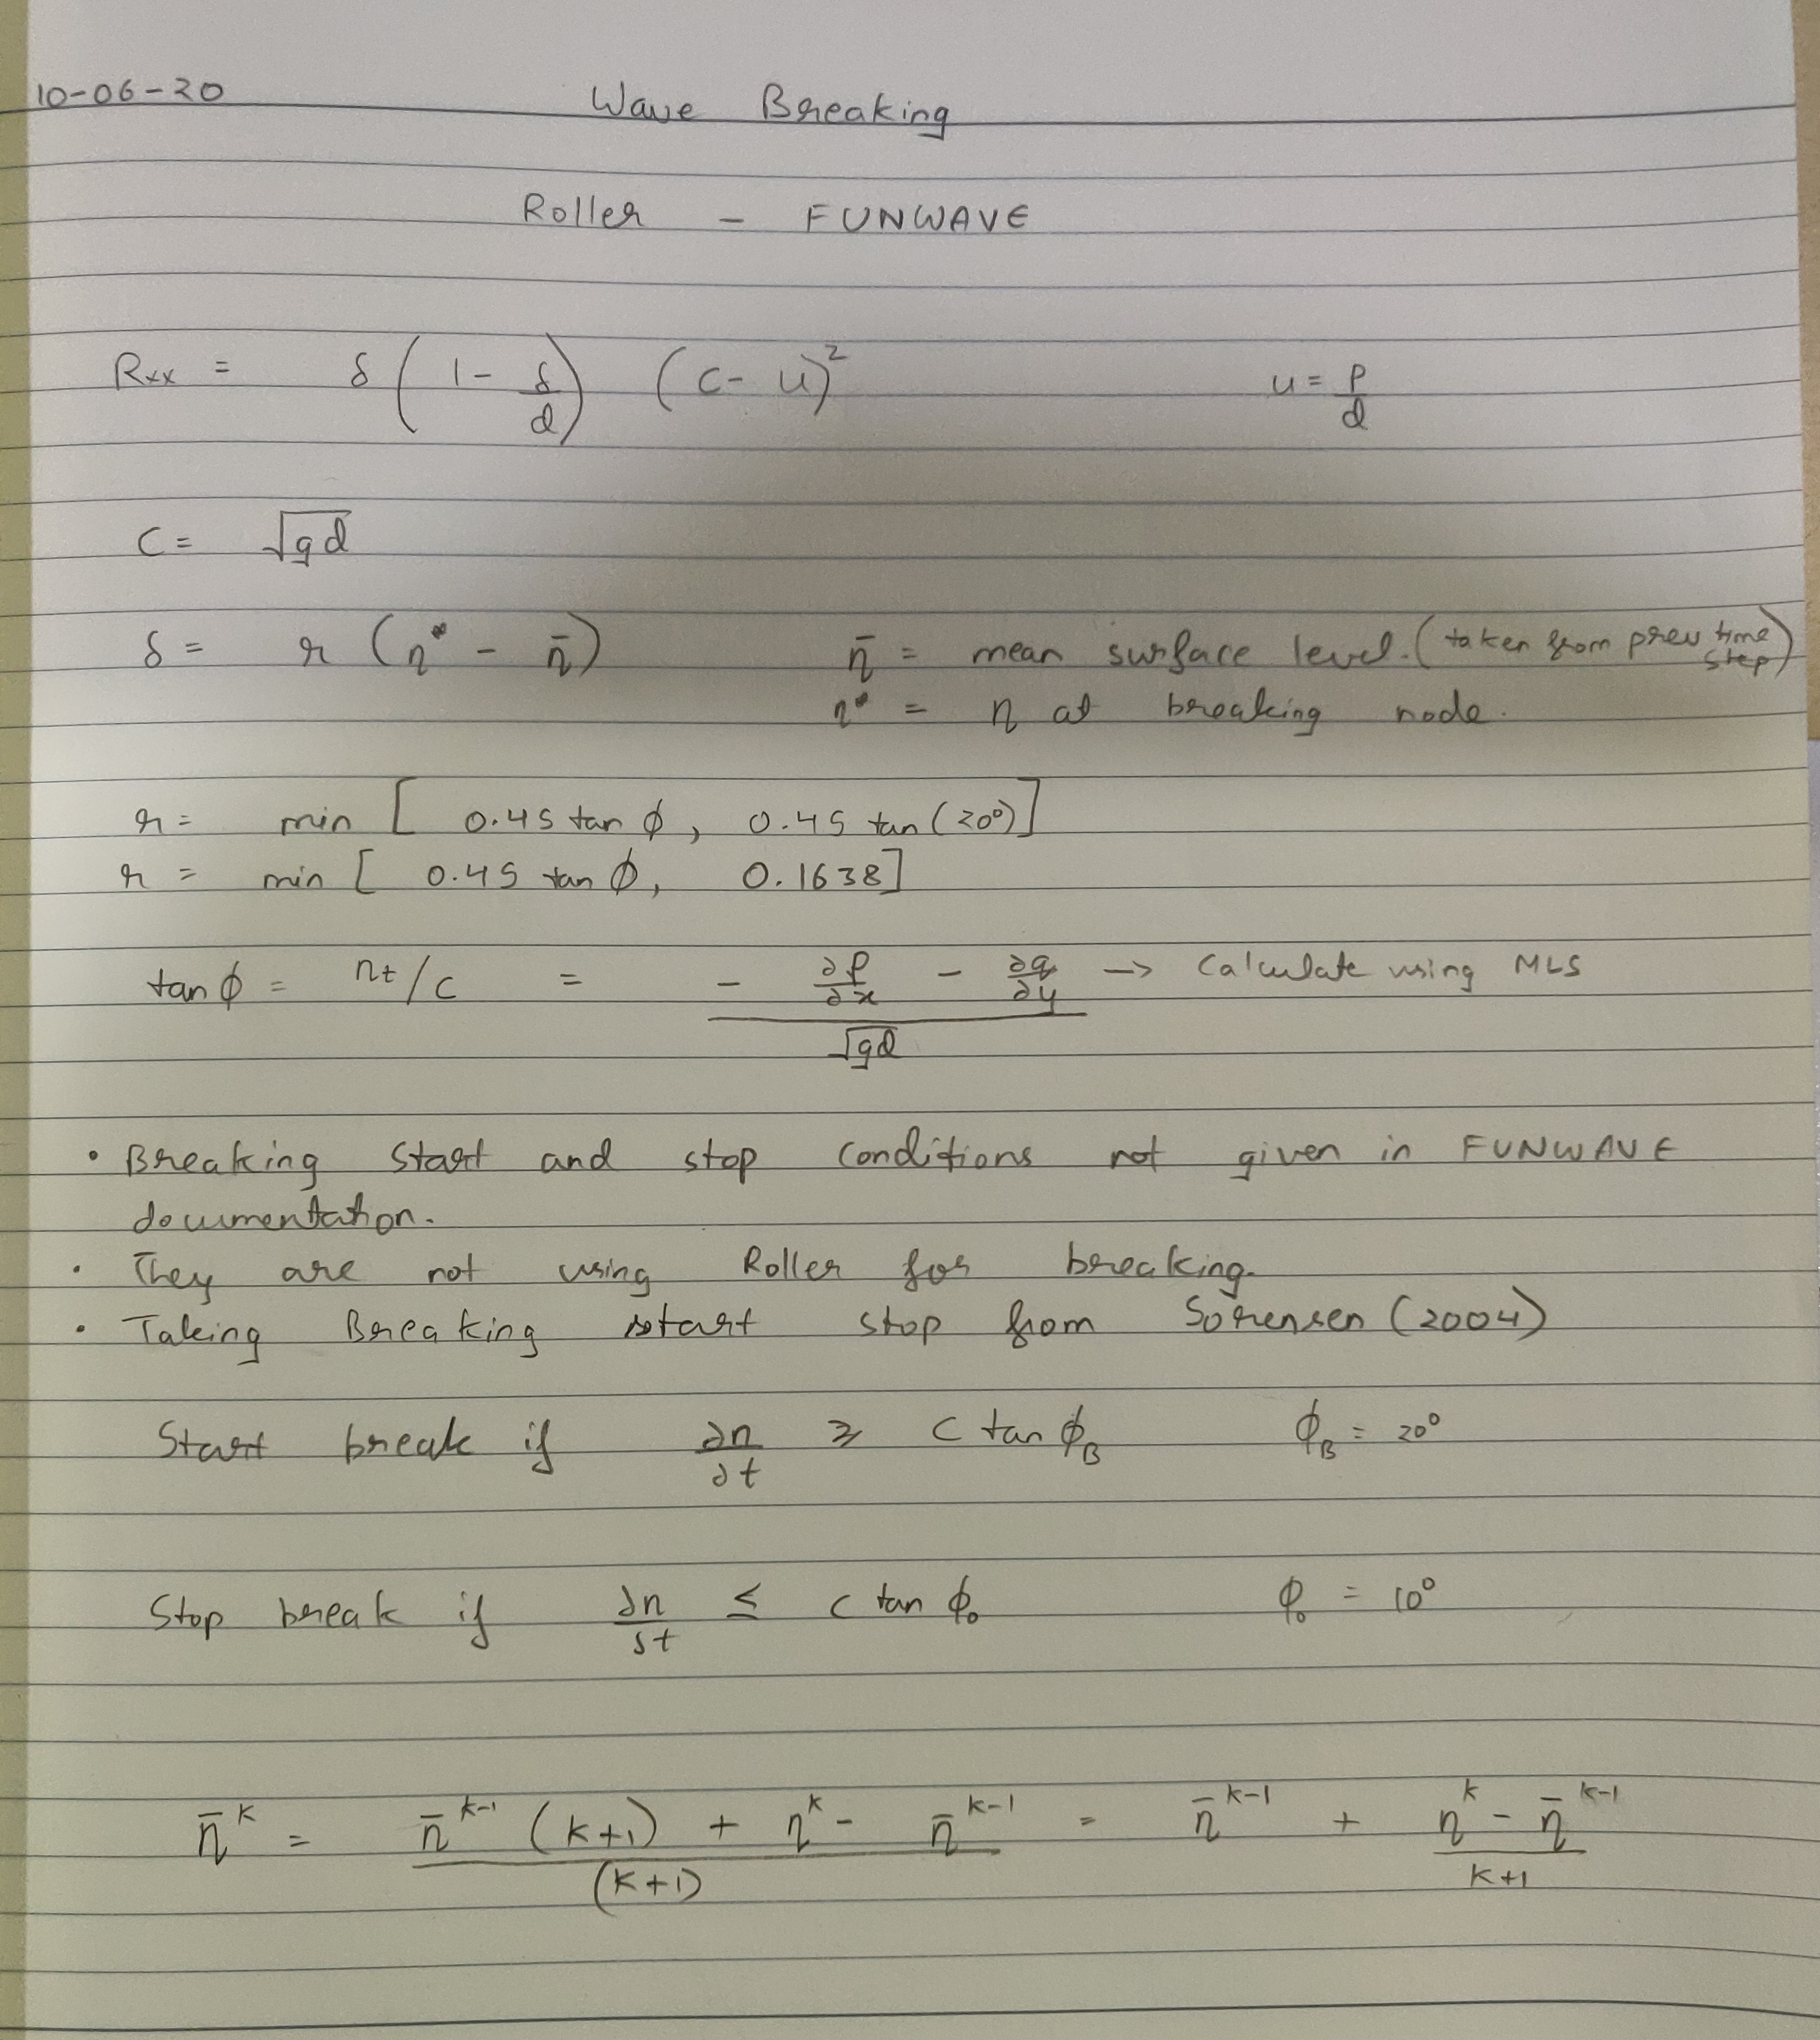 10-06-20
Wave Breaking
Roller - FUNWAVE
Rxx = δ (1 - δ/d) (C - u)² u = P/d
C = √gd
δ = r (η* - η̄) η̄ = mean surface level. (taken from prev time step)
η* = η at breaking node.
r = min [ 0.45 tan ϕ, 0.45 tan (20°)]
r = min [ 0.45 tan ϕ, 0.1638]
tan ϕ = ηt/c = (- ∂P/∂x - ∂q/∂y) / √gd → Calculate using MLS
• Breaking start and stop conditions not given in FUNWAVE
documentation.
• They are not using Roller for breaking.
• Taking Breaking start stop from Sorensen (2004)
Start break if ∂η/∂t ≥ C tan ϕB ϕB = 20°
Stop break if ∂η/∂t ≤ C tan ϕ₀ ϕ₀ = 10°
η̄^k = (η̄^(k-1) (k+1) + η^k - η̄^(k-1)) / (k+1) = η̄^(k-1) + (η^k - η̄^(k-1)) / (k+1)